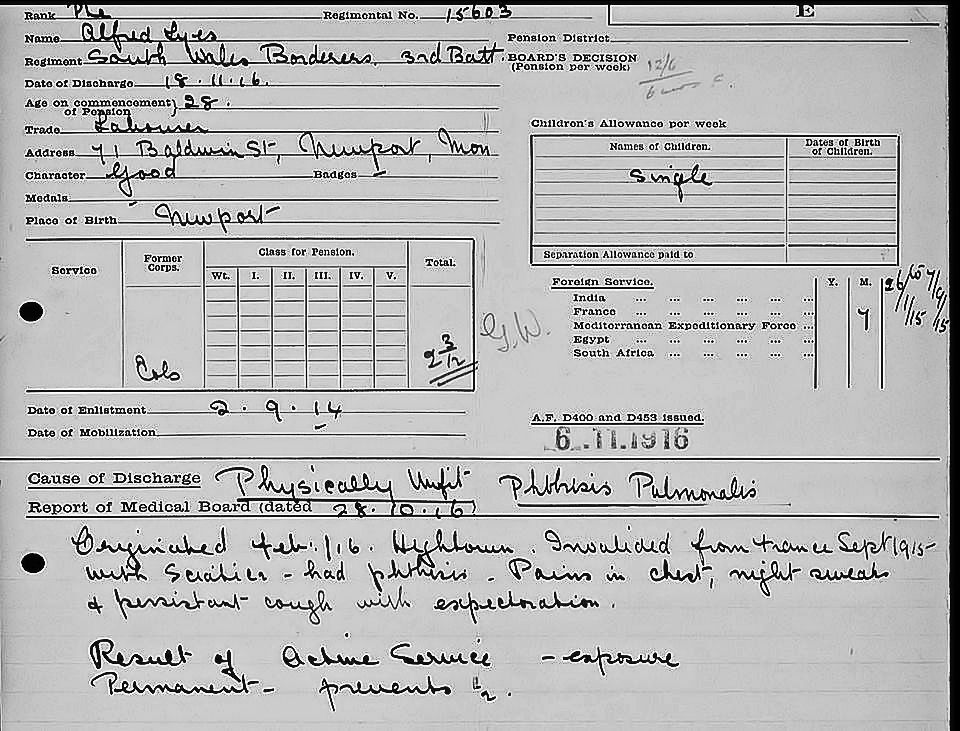 Rank Pte Regimental No. 15603 E
Name Alfred Lyes
Regiment South Wales Borderers. 3rd Batt.
Date of Discharge 18.11.16.
Age on commencement of Pension } 28.
Trade Labourer
Address 71 Baldwin St, Newport, Mon
Character Good Badges –
Medals –
Place of Birth Newport
Pension District
BOARD'S DECISION
(Pension per week) 12/6
6 mos
Children's Allowance per week
Names of Children. Dates of Birth of Children.
Single
Separation Allowance paid to
Service Former Corps. Class for Pension. Total.
Wt. I. II. III. IV. V.
2 3/12
G.W.
Foreign Service. Y. M.
India ... ... ... ... ...
France ... ... ... ... ... 7 26/1/15 to 7/9/15
Mediterranean Expeditionary Force ...
Egypt ... ... ... ... ...
South Africa ... ... ... ...
Date of Enlistment 2.9.14
Date of Mobilization
A.F. D400 and D453 issued.
6.11.1916
Cause of Discharge Physically Unfit Phthisis Pulmonalis
Report of Medical Board (dated 28.10.16)
Originated Feb./16. Hightown. Invalided from France Sept 1915
with Sciatica – had phthisis – Pains in chest, night sweats
& persistant cough with expectoration.
Result of Active Service – exposure
Permanent – prevents ½.